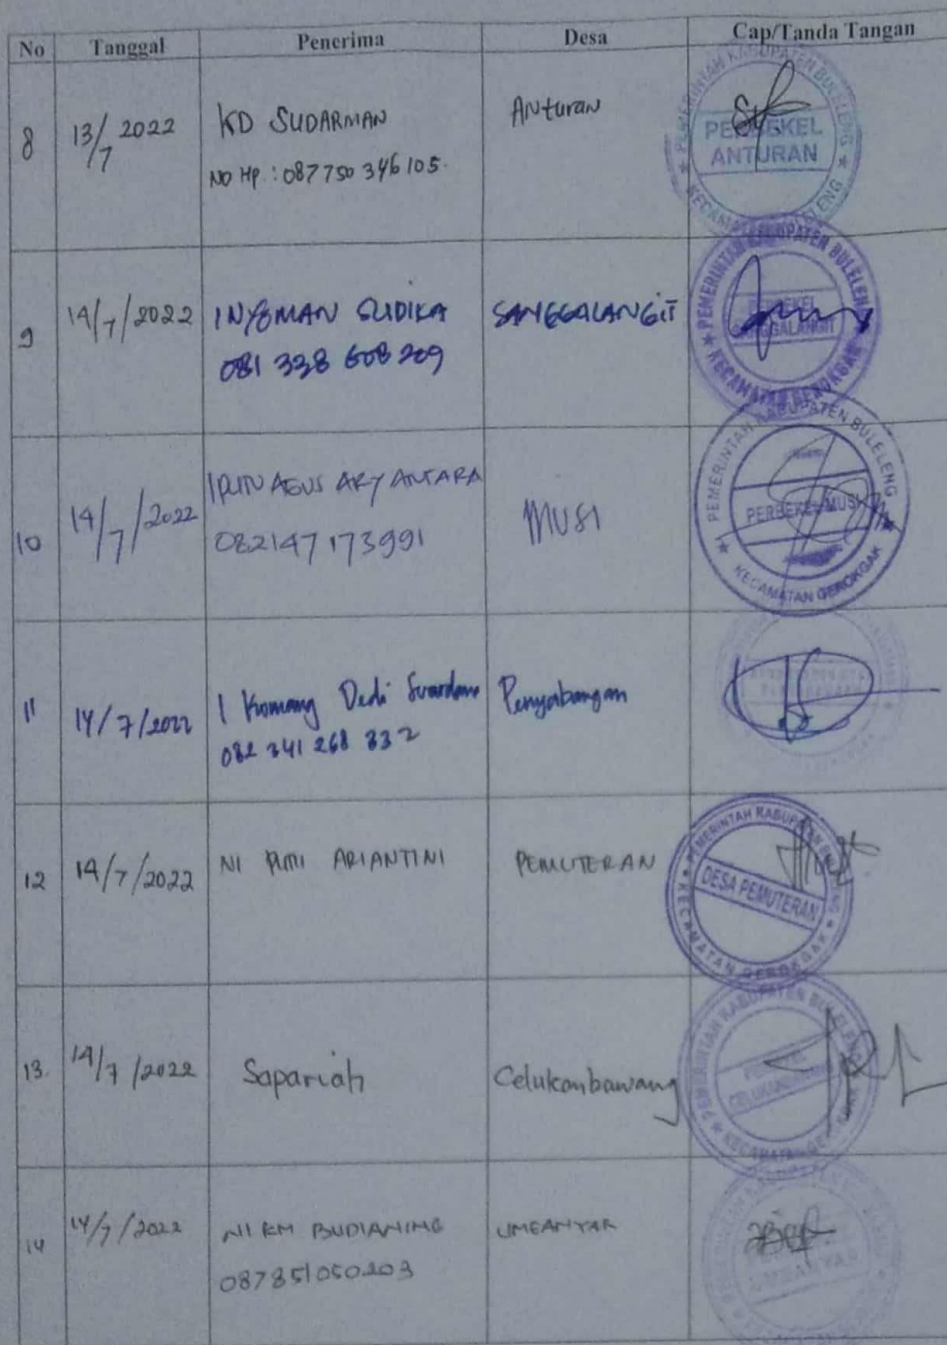 No Tanggal Penerima Desa Cap/Tanda Tangan
8 13/7 2022 KD SUDARMAN Anturan
NO HP : 087750 346 105.
PEMERINTAH KABUPATEN BULELENG
PERBEKEL
ANTURAN
KECAMATAN BULELENG
9 14/7/2022 I NYOMAN SUDIKA SANGGALANGIT
081 338 608 209
PEMERINTAH KABUPATEN BULELENG
PERBEKEL
SANGGALANGIT
KECAMATAN GEROKGAK
10 14/7/2022 I PUTU AGUS ARY ANTARA MUSI
082147173991
PEMERINTAH KABUPATEN BULELENG
PERBEKEL MUSI
KECAMATAN GEROKGAK
11 14/7/2022 I Komang Dedi Suardana Penyabangan
082 341 268 332
12 14/7/2022 NI PUTU ARIANTINI PEMUTERAN
PEMERINTAH KABUPATEN BULELENG
DESA PEMUTERAN
KECAMATAN GEROKGAK
13. 14/7/2022 Sapariah Celukanbawang
PEMERINTAH KABUPATEN BULELENG
PERBEKEL
CELUKANBAWANG
KECAMATAN GEROKGAK
14 14/7/2022 NI KM BUDIANING UMEANYAR
087851050203
UMEANYAR